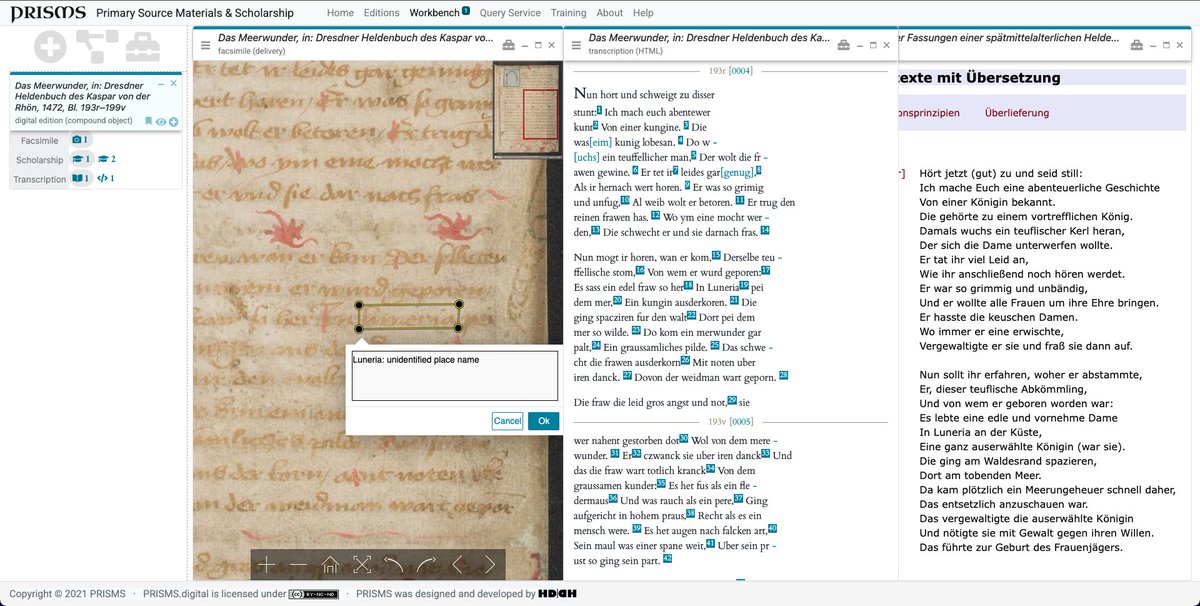 PRISMS Primary Source Materials & Scholarship
Home Editions Workbench 1 Query Service Training About Help
Das Meerwunder, in: Dresdner Heldenbuch des Kaspar von der Rhön, 1472, Bl. 193r–199v
digital edition (compound object)
Facsimile 1
Scholarship 1 2
Transcription 1 </> 1
Das Meerwunder, in: Dresdner Heldenbuch des Kaspar vo...
facsimile (delivery)
Luneria: unidentified place name
Cancel Ok
Das Meerwunder, in: Dresdner Heldenbuch des Ka...
transcription (HTML)
193r [0004]
Nun hort und schweigt zu disser
stunt:1 Ich mach euch abentewer
kunt2 Von einer kungine. 3 Die
was[eim] kunig lobesan. 4 Do w –
[uchs] ein teuffellicher man,5 Der wolt die fr –
awen gewine. 6 Er tet ir7 leides gar[genug],8
Als ir hernach wert horen. 9 Er was so grimig
und unfug,10 Al weib wolt er betoren. 11 Er trug den
reinen frawen has. 12 Wo ym eine mocht wer –
den,13 Die schwecht er und sie darnach fras. 14
Nun mogt ir horen, wan er kom,15 Derselbe teu –
ffellische stom,16 Von wem er wurd geporen:17
Es sass ein edel fraw so her18 In Luneria19 pei
dem mer,20 Ein kungin ausderkoren. 21 Die
ging spacziren fur den walt22 Dort pei dem
mer so wilde. 23 Do kom ein merwunder gar
palt,24 Ein graussamliches pilde. 25 Das schwe –
cht die frawen ausderkorn26 Mit noten uber
iren danck. 27 Dovon der weidman wart geporn. 28
Die fraw die leid gros angst und not,29 sie
193v [0005]
wer nahent gestorben dot30 Wol von dem mere –
wunder. 31 Er32 czwanck sie uber iren danck33 Und
das die fraw wart totlich kranck34 Von dem
graussamen kunder:35 Es het fus als ein fle –
dermaus36 Und was rauch als ein pere,37 Ging
aufgericht in hohem praus,38 Recht als es ein
mensch were. 39 Es het augen nach falcken art,40
Sein maul was einer spane weit,41 Uber sein pr –
ust so ging sein part. 42
r Fassungen einer spätmittelalterlichen Helde...
exte mit Übersetzung
onsprinzipien Überlieferung
Hört jetzt (gut) zu und seid still:
Ich mache Euch eine abenteuerliche Geschichte
Von einer Königin bekannt.
Die gehörte zu einem vortrefflichen König.
Damals wuchs ein teuflischer Kerl heran,
Der sich die Dame unterwerfen wollte.
Er tat ihr viel Leid an,
Wie ihr anschließend noch hören werdet.
Er war so grimmig und unbändig,
Und er wollte alle Frauen um ihre Ehre bringen.
Er hasste die keuschen Damen.
Wo immer er eine erwischte,
Vergewaltigte er sie und fraß sie dann auf.
Nun sollt ihr erfahren, woher er abstammte,
Er, dieser teuflische Abkömmling,
Und von wem er geboren worden war:
Es lebte eine edle und vornehme Dame
In Luneria an der Küste,
Eine ganz auserwählte Königin (war sie).
Die ging am Waldesrand spazieren,
Dort am tobenden Meer.
Da kam plötzlich ein Meerungeheuer schnell daher,
Das entsetzlich anzuschauen war.
Das vergewaltigte die auserwählte Königin
Und nötigte sie mit Gewalt gegen ihren Willen.
Das führte zur Geburt des Frauenjägers.
Copyright © 2021 PRISMS · PRISMS.digital is licensed under CC BY-NC-ND · PRISMS was designed and developed by HDGH